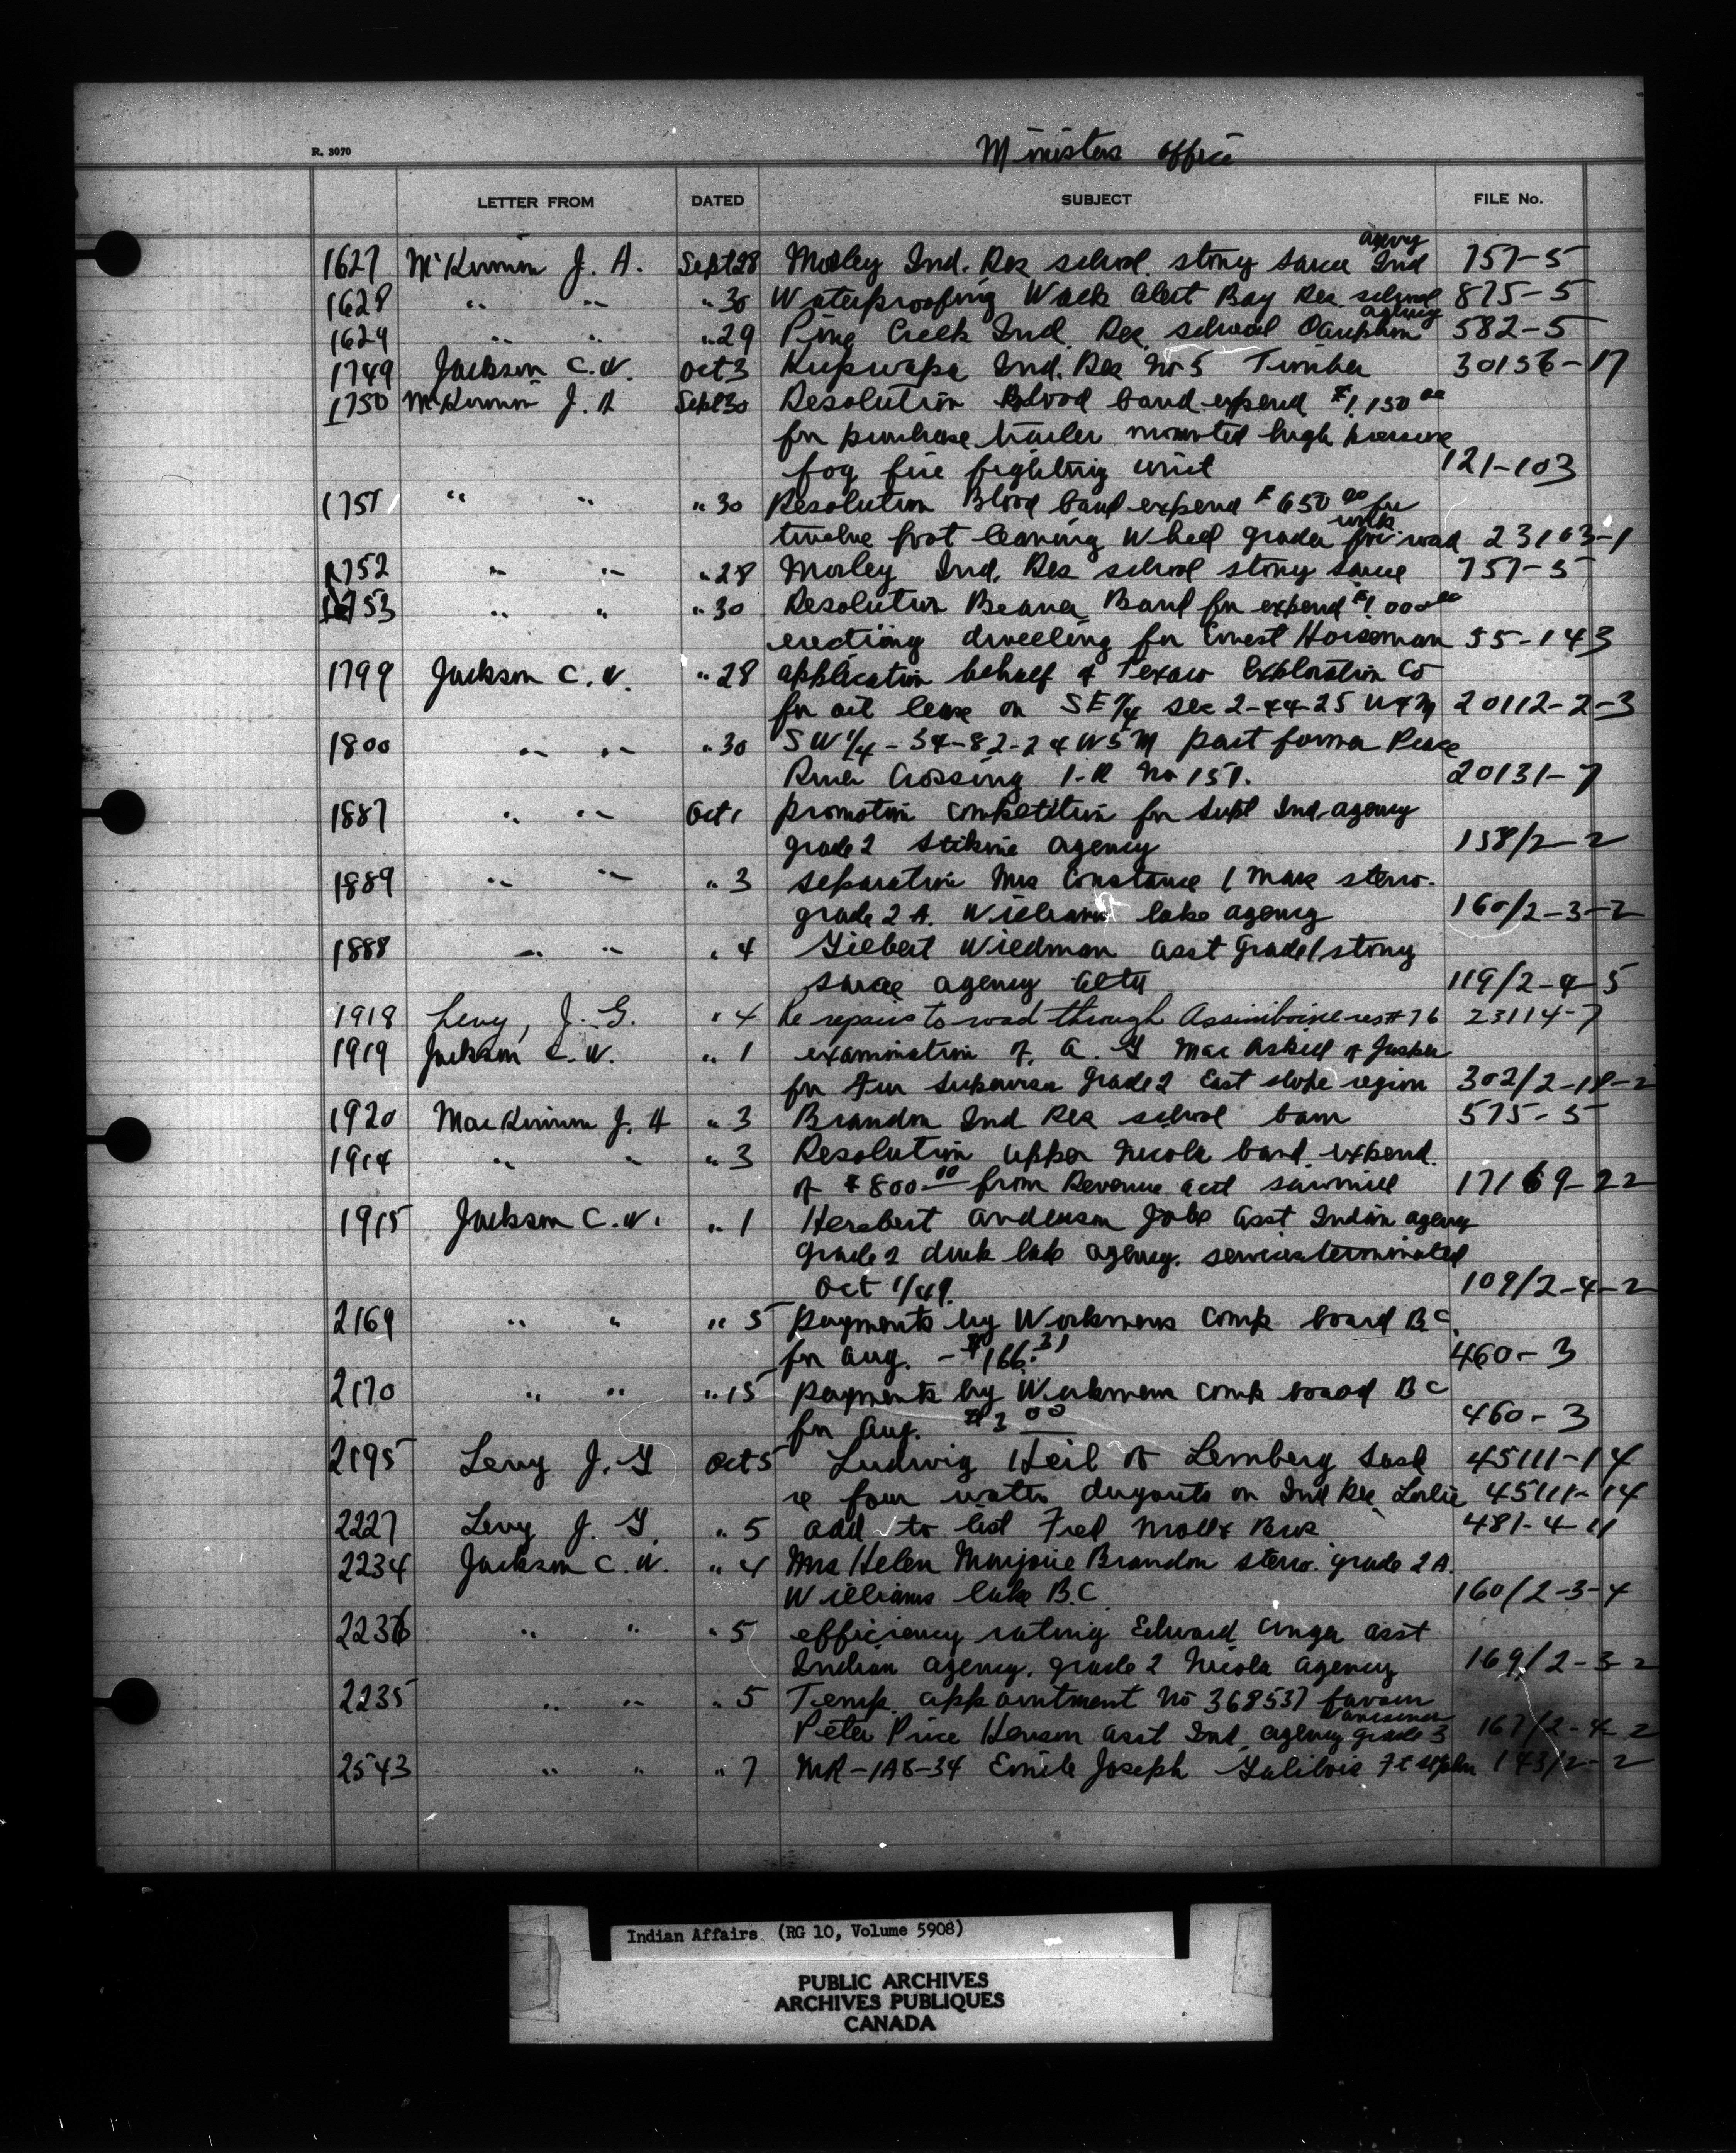 R. 3070
Ministers Office
LETTER FROM DATED SUBJECT FILE No.
agency
1627 McKinnon J. A. Sept 28 Morley Ind. Res school. stony sarcee Ind 757-5
1628 " " " 30 Waterproofing Walls Alert Bay Res. school 875-5
agency
1629 " " " 29 Pine Creek Ind. Res. school Dauphin 582-5
1749 Jackson C. W. Oct 3 Ind. Res No 5 Timber 30156-17
1750 McKinnon J. A Sept 30 Resolution Blood band expend $1,150 00
for purchase trailer mounted high pressure
fog fire fighting unit 121-103
1751 " " " 30 Resolution Blood band expend $650 00 for
twelve foot leaning wheel grader road 23103-1
1752 " " " 28 Morley Ind. Res school stony sarcee 757-5
1753 " " " 30 Resolution Beaver Band for expend $1 000 00
erecting dwelling for Ernest Horseman 55-143
1799 Jackson C. W. " 28 application behalf of Texaco Exploration Co
for oil lease on SE 1/4 sec 2-44-25 W4M 20112-2-3
1800 " " " 30 SW 1/4-34-82-24 W5M part former Peace
River Crossing I-R No 151. 20131-7
1887 " " Oct 1 promotion competition for Supt Ind. agency
grade 2 Stikine agency 158/2-2
1889 " " " 3 separation Mrs Constance I steno.
grade 2 A. Williams lake agency 160/2-3-2
1888 " " " 4 Gilbert Wiedman asst Grade 1 stony
sarcee agency alta 119/2-4-5
1918 Levy, J. G. " 4 Re repairs to road through Assiniboine res # 76 23114-7
1919 Jackson C. W. " 1 examination of A. G MacAskill of Jasper
for Fur Supervisor Grade 2 East slope region 302/2-18-2
1920 MacKinnon J. A " 3 Brandon Ind Res school barn 575-5
1914 " " " 3 Resolution upper Nicola band. expend.
of $800.00 from Revenue acct sawmill 17169-22
1915 Jackson C. W. " 1 Herbert Anderson asst Indian agency
Grade 2 duck lake agency. services terminated
Oct 1/49. 109/2-4-2
2169 " " " 5 payments by Workmens Comp board B C.
for Aug. - $166.31 460-3
2170 " " " 15 payments by Workmens Comp board B C
for Aug. $3 00 460-3
2195 Levy J. G Oct 5 Ludwig Heil of Lemberg Sask 45111-14
re four water dugouts on Ind Res Leslie 45111-14
2227 Levy J. G. " 5 add to list Fred 481-4-11
2234 Jackson C. W. " 4 Mrs Helen Marjorie Brandon steno. grade 2 A.
Williams lake B.C. 160/2-3-4
2236 " " " 5 efficiency rating Edward Unger asst
Indian agency. grade 2 Nicola agency 169/2-3-2
2235 " " " 5 Temp. appointment No 368537 favour
Vancouver
Peter Price Henson asst Ind. agency grade 3 167/2-4-2
2543 " " " 7 MR-1A8-34 Emile Joseph Galibois Ft St John 143/2-2
Indian Affairs. (RG 10, Volume 5908)
PUBLIC ARCHIVES
ARCHIVES PUBLIQUES
CANADA